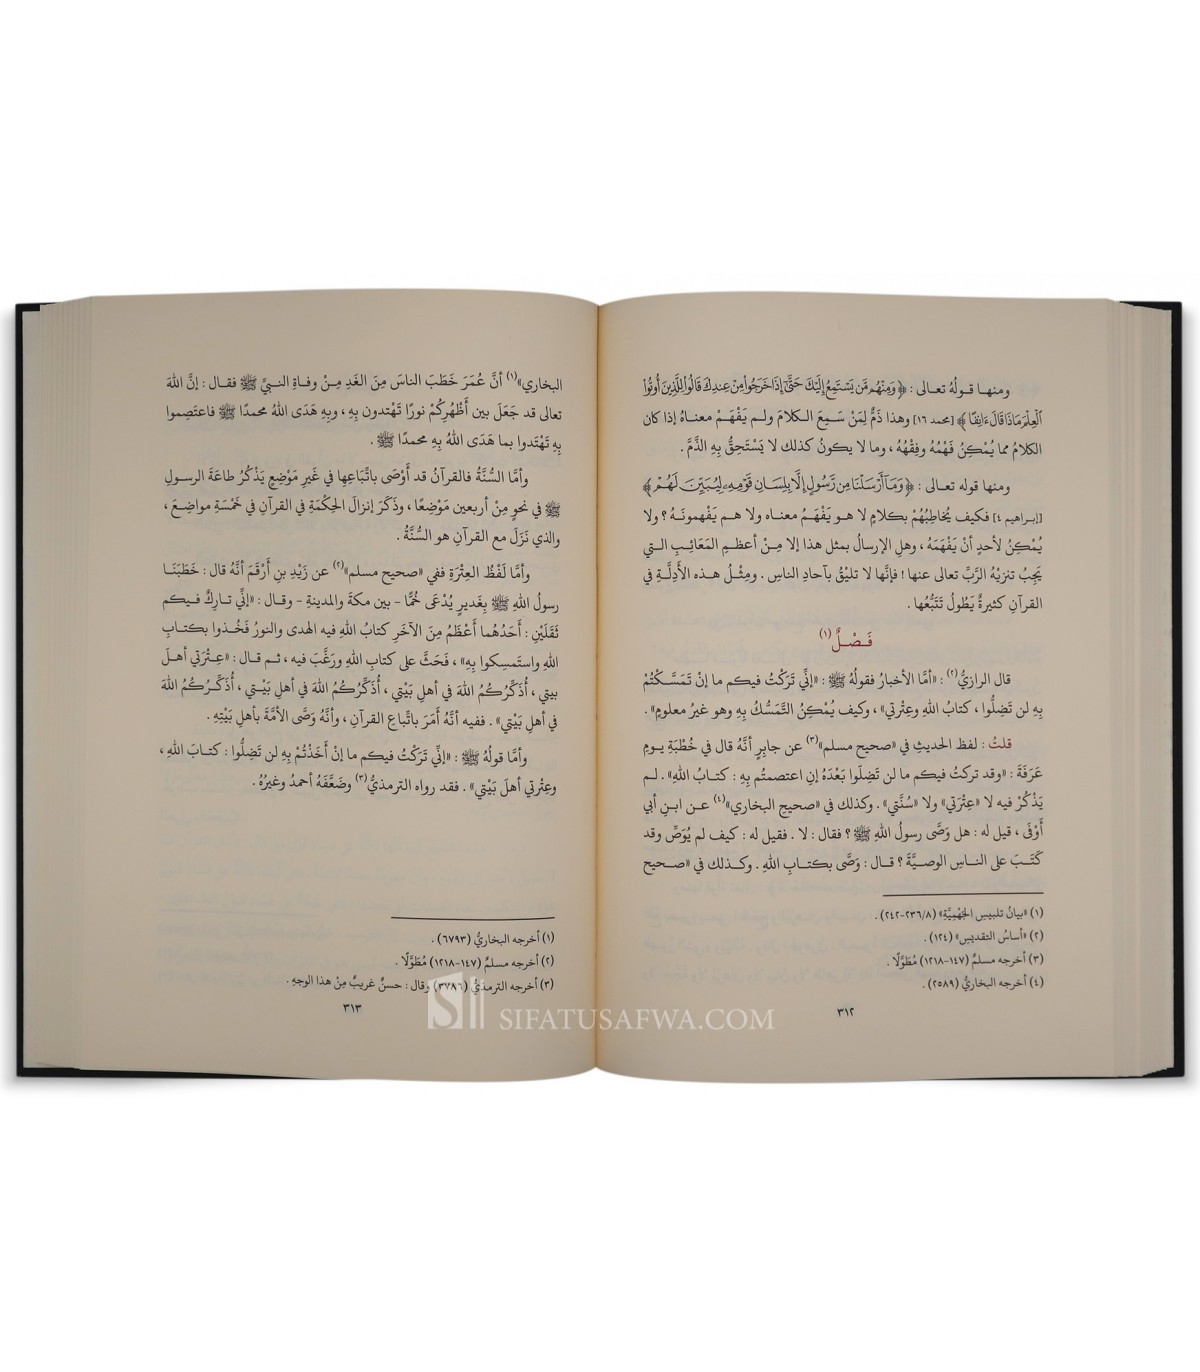 ومنها قولُهُ تعالى : ﴿ وَمِنْهُم مَّن يَسْتَمِعُ إِلَيْكَ حَتَّىٰٓ إِذَا خَرَجُوا۟ مِنْ عِندِكَ قَالُوا۟ لِلَّذِينَ أُوتُوا۟
ٱلْعِلْمَ مَاذَا قَالَ ءَانِفًا ﴾ [محمد ١٦] وهذا ذَمٌّ لِمَنْ سَمِعَ الكلامَ ولم يَفْهَمْ معناهُ إذا كان
الكلامُ مما يُمْكِنُ فَهْمُهُ وفِقْهُهُ ، وما لا يكونُ كذلك لا يَسْتَحِقُّ بِهِ الذَّمَّ .
ومنها قوله تعالى : ﴿ وَمَآ أَرْسَلْنَا مِن رَّسُولٍ إِلَّا بِلِسَانِ قَوْمِهِۦ لِيُبَيِّنَ لَهُمْ ﴾
[إبراهيم ٤] فكيف يُخاطِبُهُمْ بكلامٍ لا هو يَفْهَمُ معناه ولا هم يَفْهمونَهُ ؟ ولا
يُمْكِنُ لأحدٍ أنْ يَفْهَمَهُ ، وهل الإرسالُ بمثل هذا إلا مِنْ أعظمِ المَعَائِبِ التي
يَجِبُ تنزيْهُ الرَّبِّ تعالى عنها ! فإنَّها لا تليْقُ بآحادِ الناسِ . ومِثْلُ هذه الأدِلَّةِ في
القرآنِ كثيرةٌ يَطُولُ تَتَبُّعُها .
فَـصْـلٌ (١)
قال الرازيُّ (٢) : «أمَّا الأخبارُ فقولُهُ ﷺ : «إنِّي تَرَكْتُ فيكم ما إنْ تَمَسَّكْتُمْ
بِهِ لن تَضِلُّوا ، كتابُ اللهِ وعِتْرتي» ، وكيف يُمْكِنُ التَّمَسُّكُ بِهِ وهو غيرُ معلومٍ» .
قلتُ : لفظ الحديثِ في «صحيح مسلم» (٣) عن جابرٍ أنَّهُ قال في خُطْبَةِ يومِ
عَرَفَةَ : «وقد تركتُ فيكم ما لن تَضِلُّوا بَعْدَهُ إنِ اعتصمتُم بِهِ : كتابُ اللهِ» . لم
يَذْكُرْ فيه لا «عِتْرَتي» ولا «سُنَّتي» . وكذلك في «صحيحِ البخاري» (٤) عن ابنِ أبي
أَوْفَى ، قيل له : هل وَصَّى رسولُ اللهِ ﷺ ؟ فقال : لا . فقيل له : كيف لم يُوَصِّ وقد
كَتَبَ على الناسِ الوصيَّةَ ؟ قال : وَصَّى بكتابِ اللهِ . وكذلك في «صحيح
(١) «بيانُ تلبيسِ الجَهْمِيَّةِ» (٨/٢٣٦-٢٤٢) .
(٢) «أساسُ التقديسِ» (١٢٤) .
(٣) أخرجه مسلمٌ (١٤٧-١٢١٨) مُطَوَّلًا .
(٤) أخرجه البخاريُّ (٢٥٨٩) .
٣١٢
البخاري» (١) أنَّ عُمَرَ خَطَبَ الناسَ مِنَ الغَدِ مِنْ وفاةِ النبيِّ ﷺ فقال : إنَّ اللهَ
تعالى قد جَعَلَ بين أَظْهُرِكُمْ نورًا تَهْتدون بِهِ ، وبِهِ هَدَى اللهُ محمدًا ﷺ فاعتَصِموا
بِهِ تَهْتَدوا بما هَدَى اللهُ بِهِ محمدًا ﷺ .
وأمَّا السُّنَّةُ فالقرآنُ قد أَوْصَى باتِّباعِها في غَيرِ مَوْضِعٍ يَذْكُرُ طاعَةَ الرسولِ
ﷺ في نحوٍ مِنْ أربعين مَوْضِعًا ، وذَكَرَ إنزالَ الحِكْمَةِ في القرآنِ في خَمْسَةِ مواضِعَ ،
والذي نَزَلَ مع القرآنِ هو السُّنَّةُ .
وأمَّا لَفْظُ العِتْرَةِ ففي «صحيح مسلم» (٢) عن زَيْدِ بنِ أَرْقَمَ أنَّهُ قال : خَطَبَنَا
رسولُ اللهِ ﷺ بِغَديرٍ يُدْعَى خُمًّا - بين مكةَ والمدينةِ - وقال : «إنِّي تاركٌ فيكم
ثَقَلَيْنِ : أَحَدُهُما أَعْظَمُ مِنَ الآخَرِ كتابُ اللهِ فيه الهدى والنورُ فَخُذوا بكتابِ
اللهِ واستَمسِكوا بِهِ» ، فَحَثَّ على كتابِ اللهِ ورَغَّبَ فيه ، ثم قال : «عِتْرَتي أهلَ
بيتي ، أُذَكِّرُكُمُ اللهَ في أهلِ بَيْتِي ، أُذَكِّرُكُمُ اللهَ في أهلِ بَيْتِي ، أُذَكِّرُكُمُ اللهَ
في أهلِ بَيْتِي» . ففيه أنَّهُ أَمَرَ باتِّباعِ القرآنِ ، وأنَّهُ وَصَّى الأمَّةَ بأهلِ بَيْتِهِ .
وأمَّا قولُهُ ﷺ : «إنِّي تَرَكْتُ فيكم ما إنْ أَخَذْتُمْ بِهِ لن تَضِلُّوا : كتابَ اللهِ ،
وعِتْرتي أهلَ بَيْتِي» . فقد رواه الترمذيُّ (٣) وضَعَّفَهُ أحمدُ وغيرُهُ .
(١) أخرجه البخاريُّ (٦٧٩٣) .
(٢) أخرجه مسلمٌ (١٤٧-١٢١٨) مُطَوَّلًا .
(٣) أخرجه الترمذيُّ (٣٧٨٦) وقال : حسنٌ غريبٌ مِنْ هذا الوجهِ .
٣١٣
SIFATUSAFWA.COM